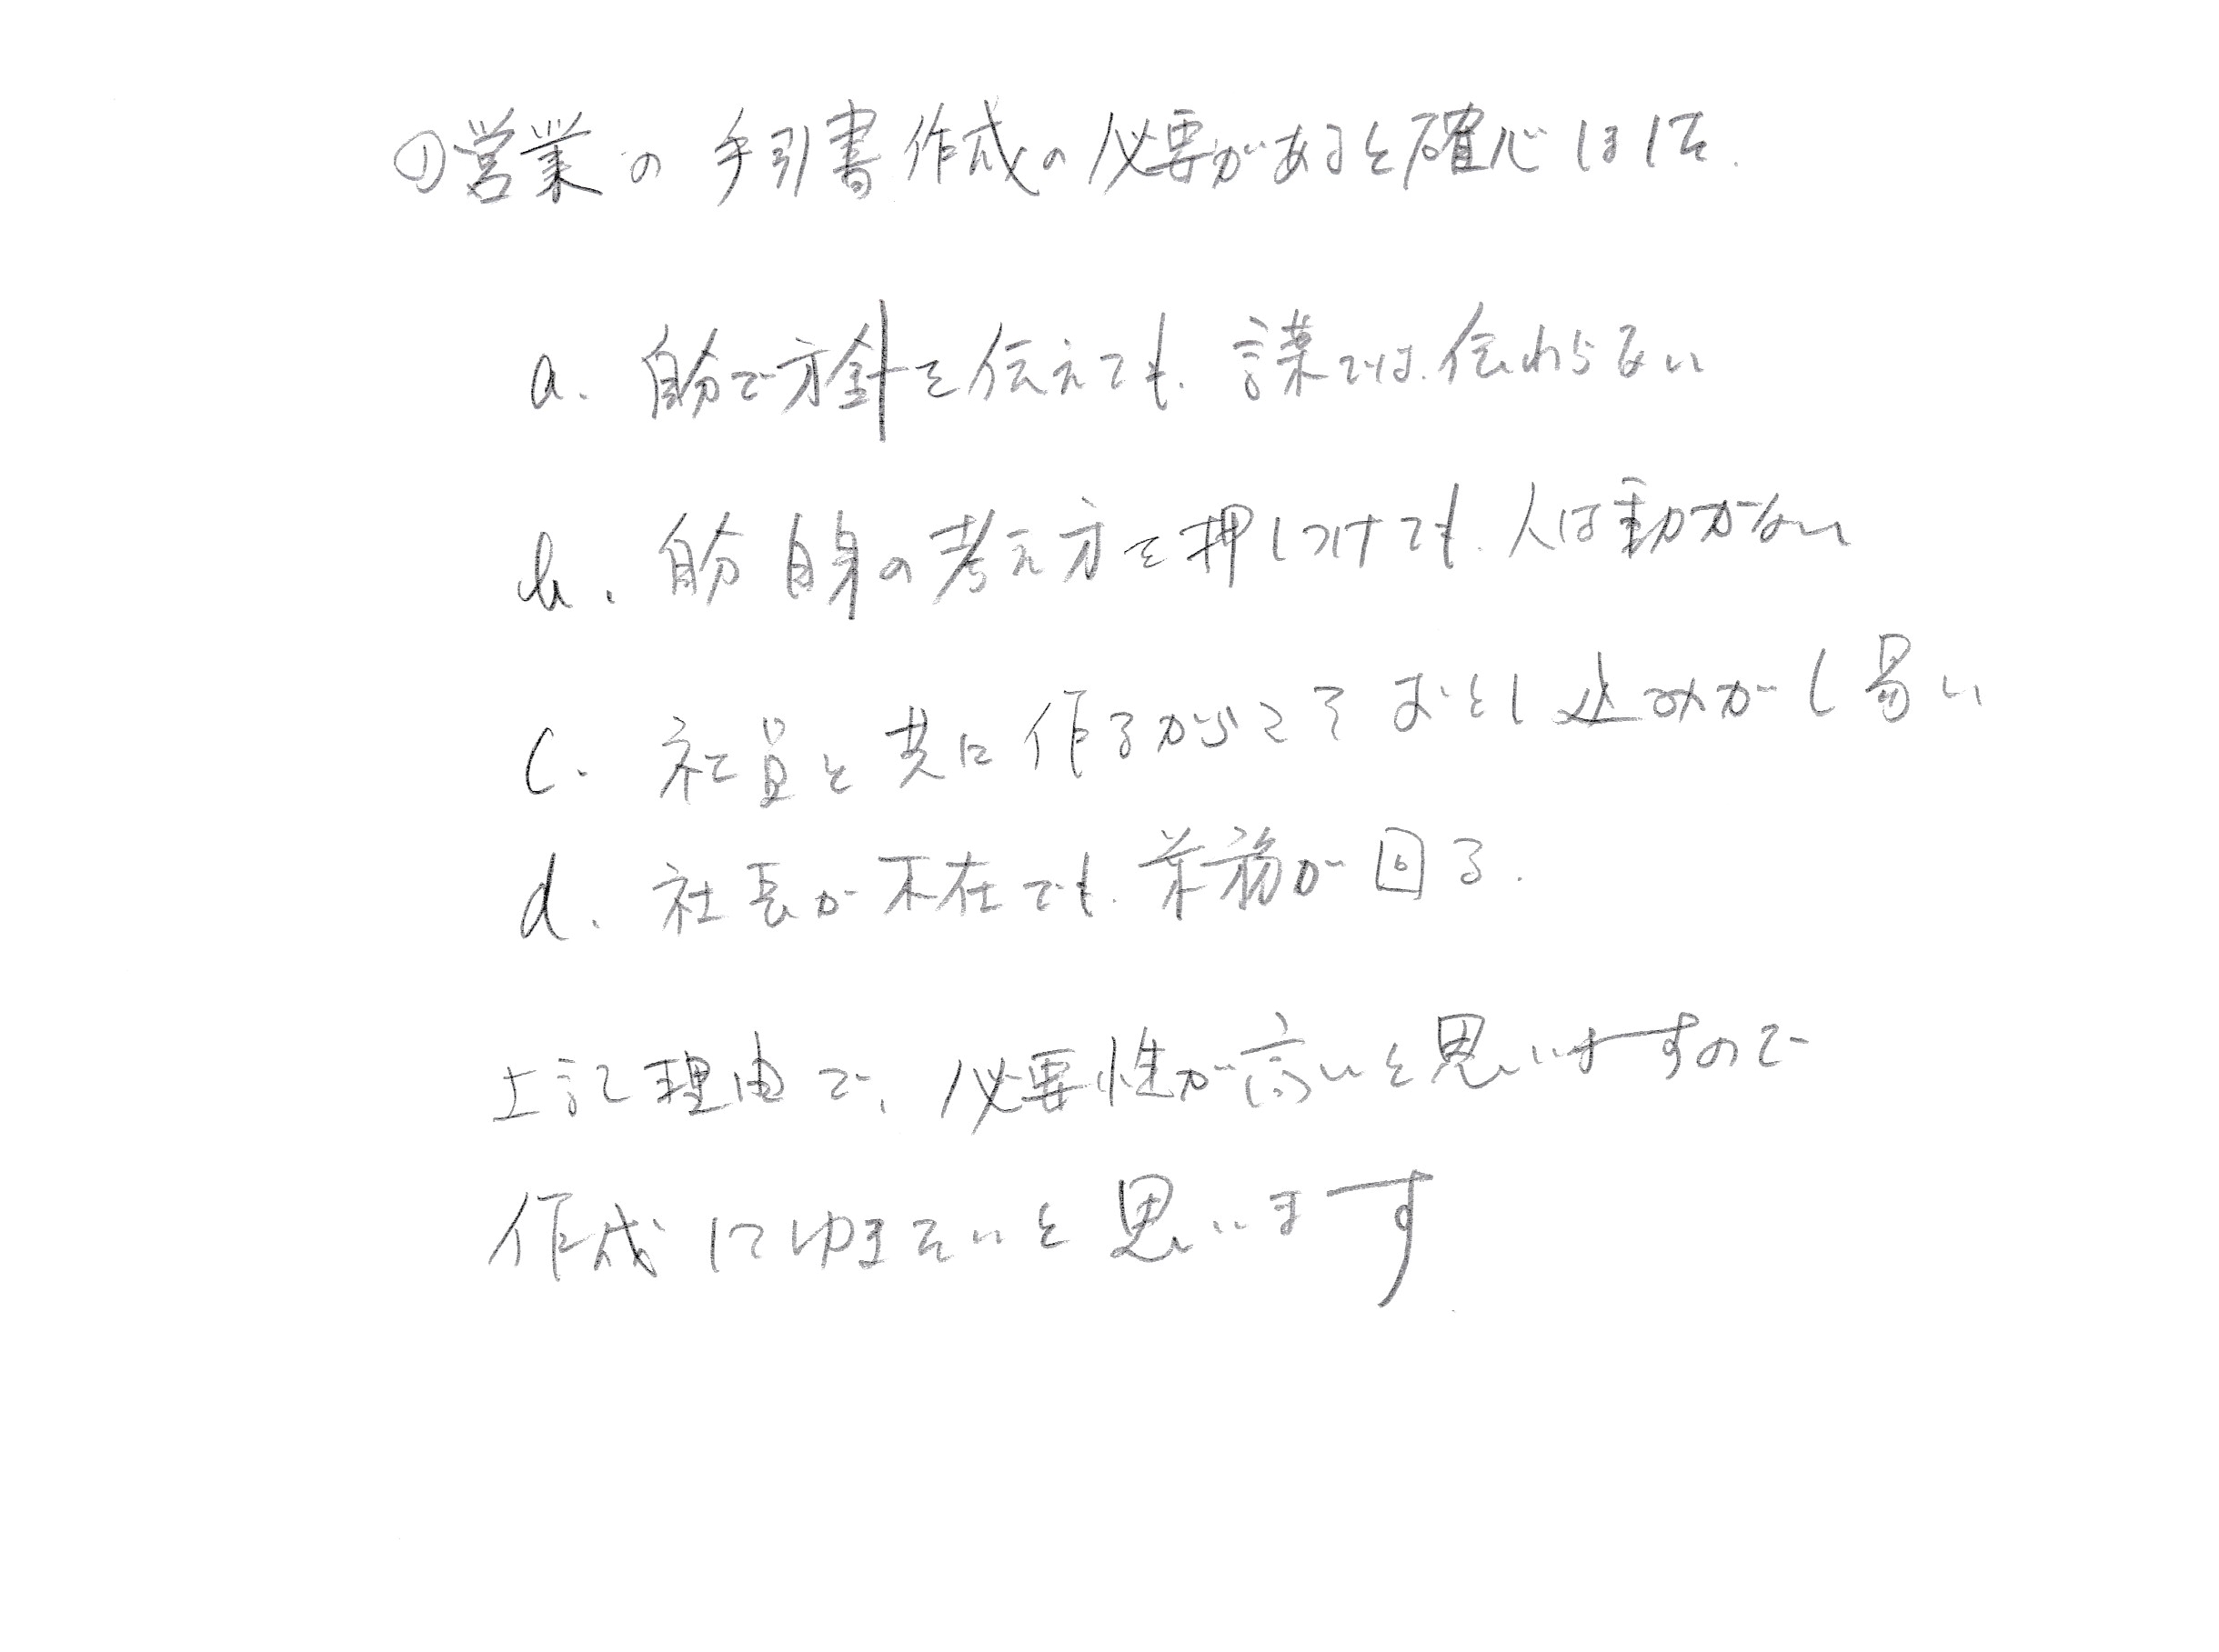 ①営業の手引書作成の必要があると確心しました.
a. 自分で方針を伝えても. 言葉では.伝わらない
b. 自分自身の考え方を押しつけても. 人は動かない
c. 社員と共に作るからこそおとし込みがし易い
d. 社長が不在でも. 業務が回る.
上記理由で, 必要性が高いと思いますので
作成して いきたいと思います